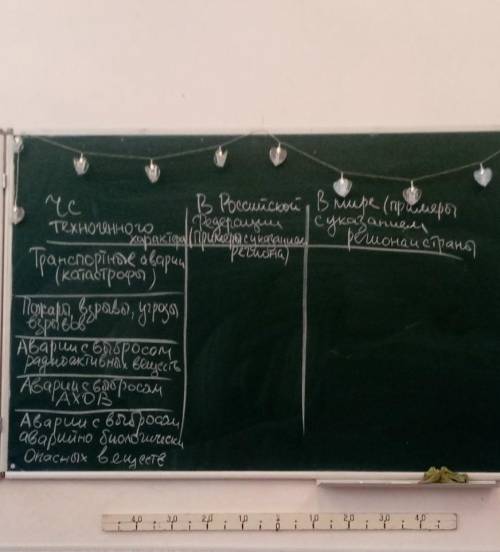 ЧС
техногенного
характера
В Российской
Федерации
(примеры с указанием
региона)
В мире (примеры
с указанием
региона и страны
Транспортные аварии
(катастрофы)
Пожары, взрывы, угрозы
взрывов
Аварии с выбросом
радиоактивных веществ
Аварии с выбросом
АХОВ
Аварии с выбросом
аварийно биологически
Опасных веществ
4,0 3,0 2,0 1,0 1,0 2,0 3,0 4,0